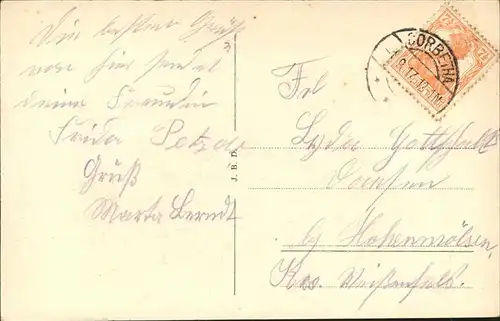 Die besten Grüße
von hier sendet
deine Freundin
Frida
Gruß
Marta Berndt
J. B. D.
CORBETHA
7½
7½
Frl
Lydia Gottschalk
b/ Hohenmölsen,
Krs. Weißenfels.